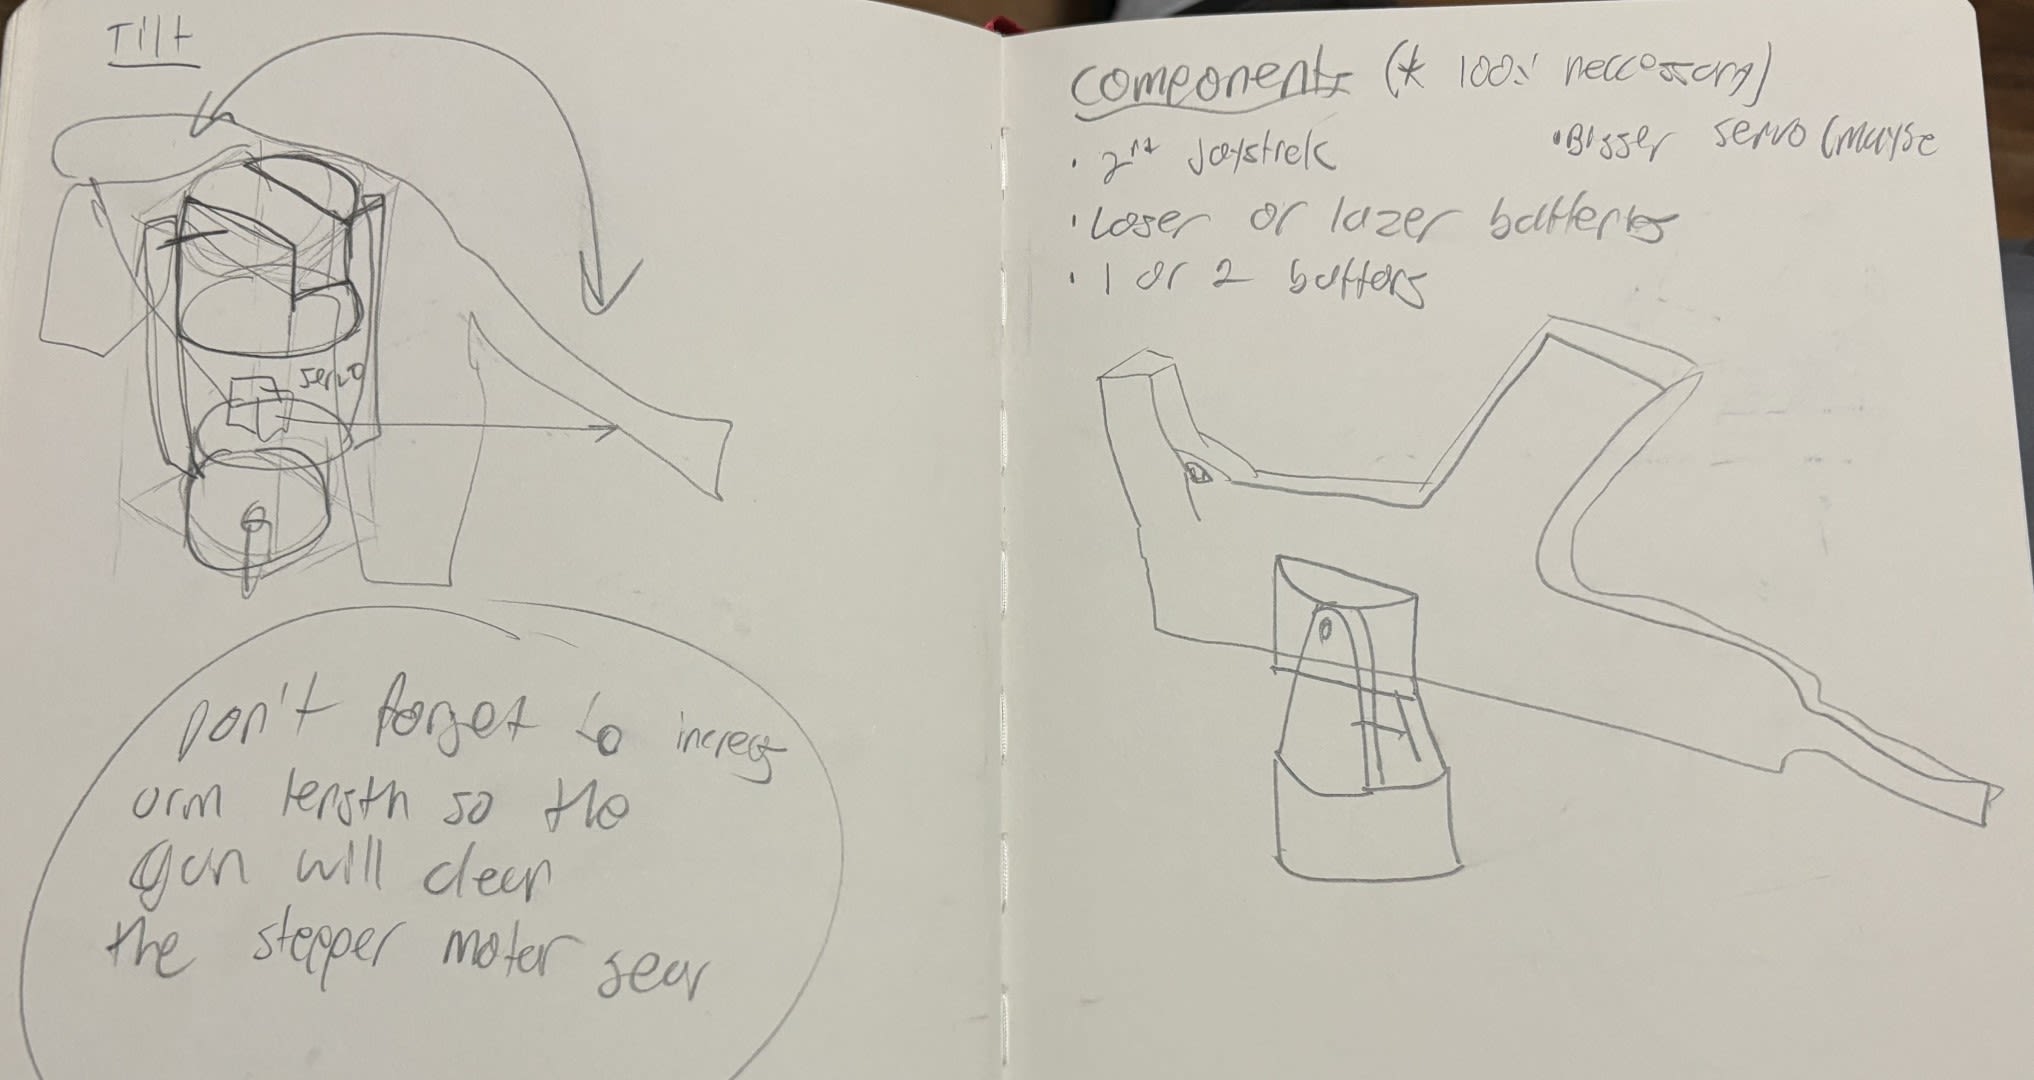 Tilt
servo
Don't forget to increas
arm length so the
gun will clear
the stepper motor gear
Components (* 100% neccessary)
• 2nd Joystick
• Bigger servo (maybe
• Laser or lazer batteries
• 1 or 2 buttons